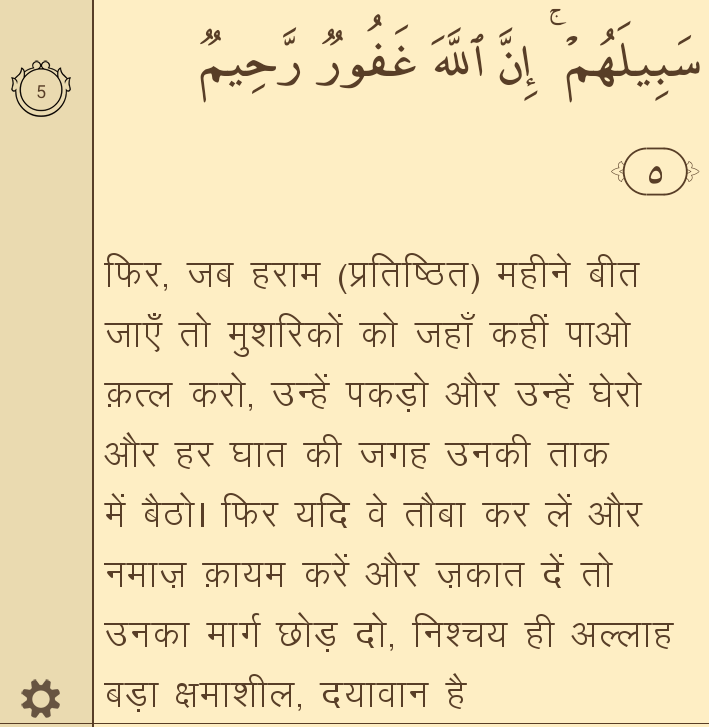 سَبِيلَهُمْ ۚ إِنَّ ٱللَّهَ غَفُورٌ رَّحِيمٌ
5
٥
फिर, जब हराम (प्रतिष्ठित) महीने बीत
जाएँ तो मुशरिकों को जहाँ कहीं पाओ
क़त्ल करो, उन्हें पकड़ो और उन्हें घेरो
और हर घात की जगह उनकी ताक
में बैठो। फिर यदि वे तौबा कर लें और
नमाज़ क़ायम करें और ज़कात दें तो
उनका मार्ग छोड़ दो, निश्चय ही अल्लाह
बड़ा क्षमाशील, दयावान है